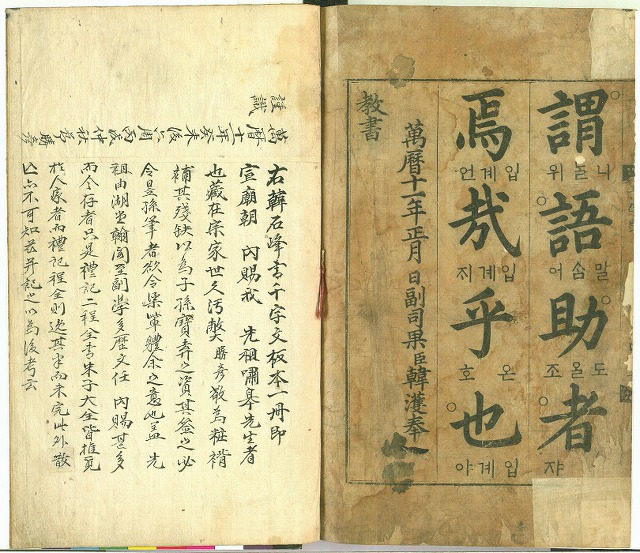 謂語助者
니ᄅᆞᆯ 위
말ᄉᆞᆷ 어
도올 조
쟈
焉哉乎也
입계 언
입계 지
온 호
입계 야
萬曆十一年正月 日副司果臣韓濩奉
敎書
右韓石峰書千字文板本一冊即
宣廟朝 內賜我 先祖嘯皋先生者
也藏在宗家世久汚弊勝彦敢為粧褙
補其殘缺以為子孫寶弄之資其益之必
令昆孫筆者欲令渠輩體余之意也盖 先
祖由湖堂翰閣至副學多歷文任 內賜甚多
而今存者只是禮記二程全書朱子大全皆推覓
於人家者而禮記程全則逸其半而未完此外散
亡亦不可知故并記之以為後考云
萬曆十一年癸未後六周丙辰仲秋 勝彦
謹識